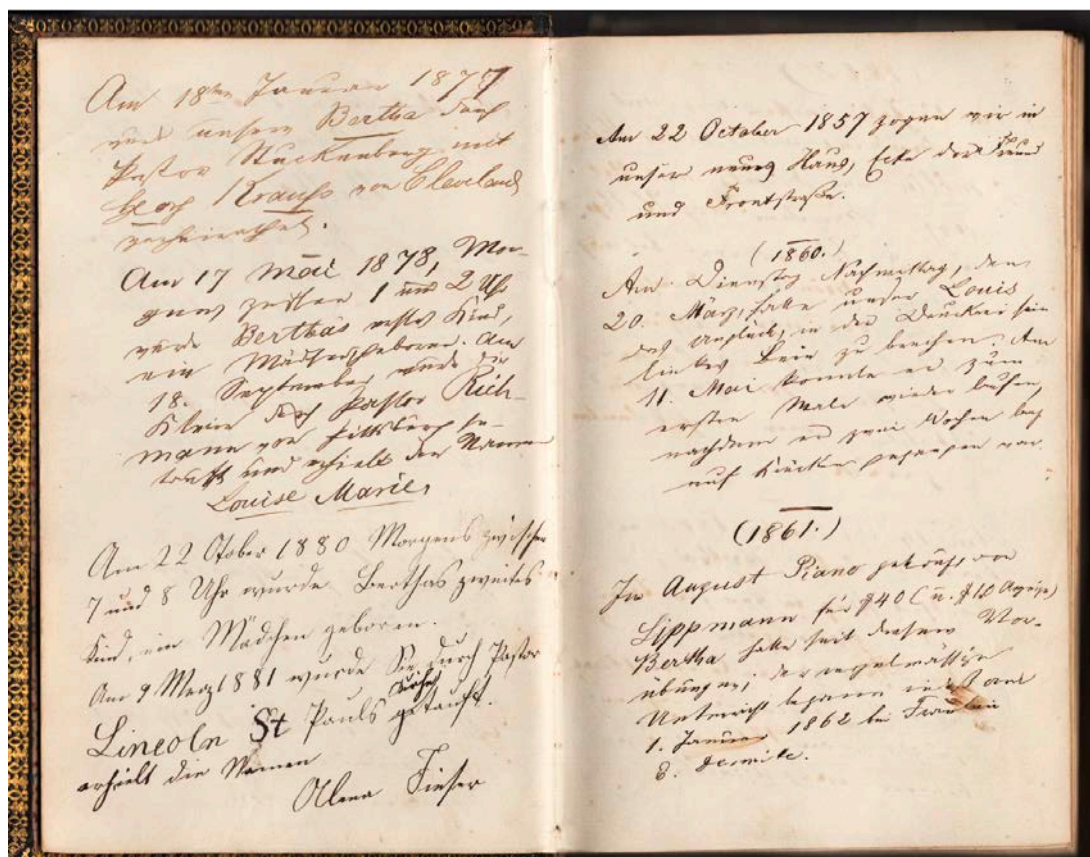 Am 18ten Januar 1877
wurde unsere Bertha durch
Pastor Stuckenberg mit
Krauß von Cleveland
verheirathet.
Am 17 Mai 1878, Mor-
gens zwischen 1 und 2 Uhr
wurde Berthas erstes Kind,
ein Mädchen geboren. Am
18. September wurde die
Kleine durch Pastor Rich-
mann von Pittsburg ge-
tauft und erhielt den Namen
Louise Marie.
Am 22 Otober 1880 Morgens zwischen
7 und 8 Uhr wurde Berthas zweites
Kind, ein Mädchen geboren.
Am 9 Merz 1881 wurde Sie durch Pastor
Lincoln St Pauls Kirche getauft.
erhielt die Namen
Fieser
Am 22 October 1857 zogen wir in
unser neues Haus, Ecke der
und Frontstraße.
(1860.)
Am Dienstag Nachmittag, den
20. März, hatte unser Louis
das Unglück, in der Druckerei sein
linkes Bein zu brechen. Am
11. Mai konnte er zum
ersten Male wieder laufen,
nachdem er zwei Wochen lang
auf Krücken gegangen war.
(1861.)
Im August Piano gekauft von
Lippmann für $
Bertha hatte seit diesem Vor-
übungen; der regelmässige
Unterricht begann
1. Januar 1862 bei Fräulein
E.